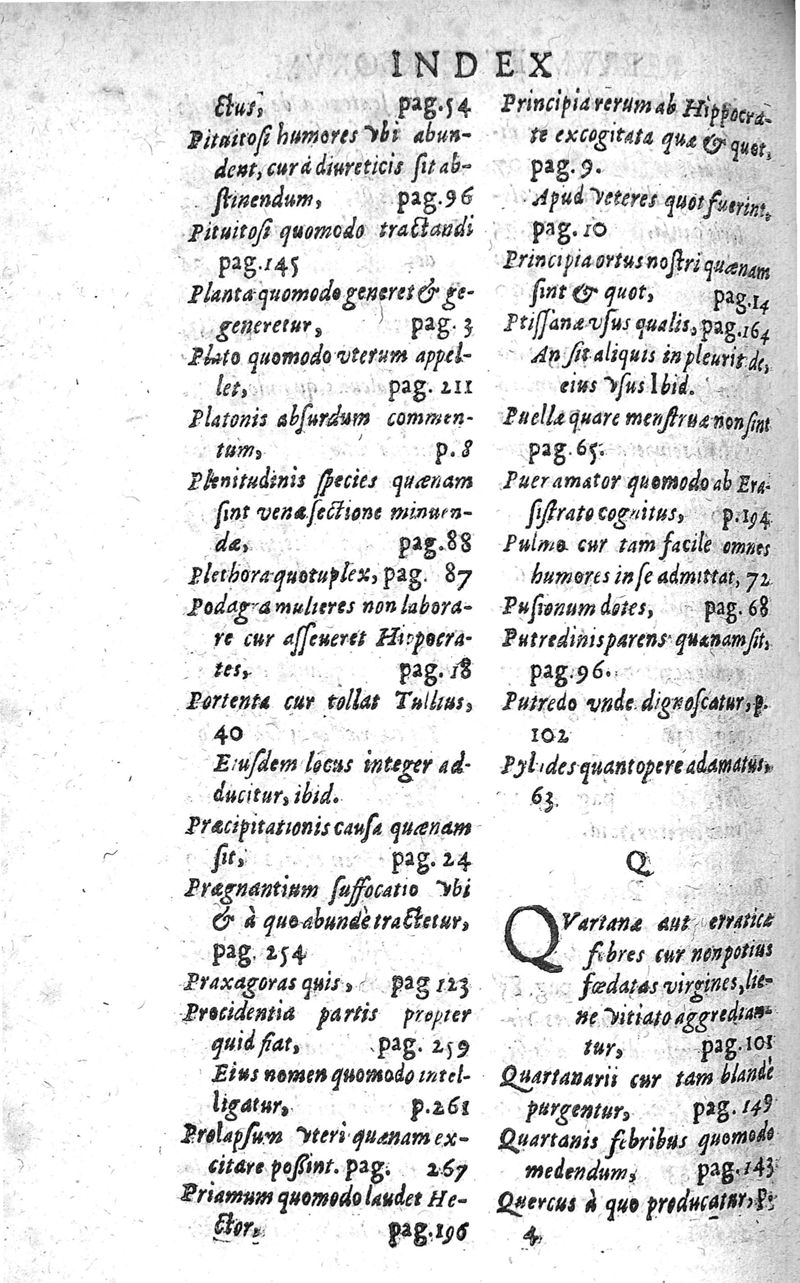 INDEX
ctus, pag.54
Pituitosi humores vbi abun-
dent, cur à diureticis sit ab-
stinendum, pag.96
Pituitosi quomodo tractandi
pag.145
Planta quomodo generet & ge-
generetur, pag. 3
Plato quomodo vterum appel-
let, pag. 211
Platonis absurdum commen-
tum, p.8
Plenitudinis species quænam
sint venæ sectione minuen-
dæ, pag.88
Plethora quotuplex, pag. 87
Podagra mulieres non labora-
re cur asseueret Hippocra-
tes, pag.18
Portenta cur tollat Tullius,
40
Eiusdem locus integer ad-
ducitur, ibid.
Præcipitationis causa quænam
sit, pag.24
Prægnantium suffocatio vbi
& à quo abundè tractetur,
pag. 254
Praxagoras quis, pag 123
Procidentia partis propter
quid fiat, pag. 259
Eius nomen quomodo intel-
ligatur, p.261
Prolapsum vteri quænam ex-
citare possint. pag. 267
Priamum quomodo laudet He-
ctor, pag.196
Principia rerum ab Hippocra-
te excogitata quæ & quot,
pag.9.
Apud veteres quot fuerint,
pag.10
Principia ortus nostri quænam
sint & quot, pag.14
Ptissanæ vsus qualis, pag.164
An sit aliquis in pleuritide,
eius vsus Ibid.
Puellæ quare menstruæ non sint
pag.65.
Puer amator quomodo ab Era-
sistrato cognitus, p.194
Pulmo cur tam facile omnes
humores in se admittat, 72
Pusionum dotes, pag.68
Putredinis parens quænam sit,
pag.96.
Putredo vnde dignoscatur, p.
102
Pylides quantopere adamatus,
63
Q
QVartanæ aut erraticæ
febres cur non potius
fœdatas virgines, lie-
ne vitiato aggredian-
tur, pag.101
Quartanarii cur tam blandè
purgentur, pag.149
Quartanis febribus quomodo
medendum, pag.143
Quercus à quo producatur, p.
4